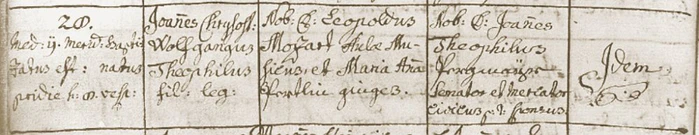 28.
med: 11. merid: baptizatus est: natus
pridie h: 8. vesp:
Joannes Chrysost:
Wolfgangus
Theophilus
fil: leg:
Nob: D: Leopoldus
Mozart Aulæ Musicus, et Maria Anna
Pertlin giuges.
Nob: D: Joannes
Theophilus
Pergmayr
Senator et Mercator
civicus p: t: sponsus
Idem